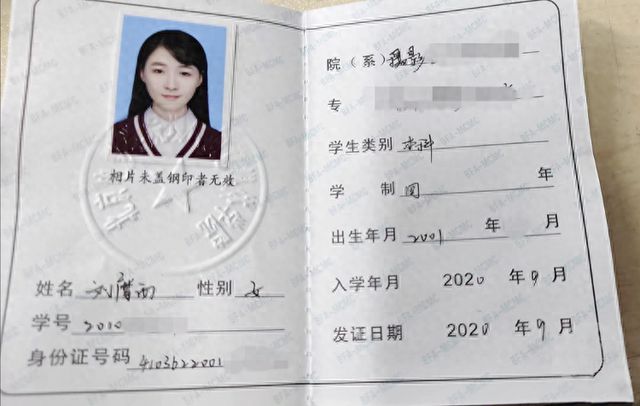 相片未盖钢印者无效
姓名 刘 雨 性别 女
学号 2010
身份证号码 4103622001
院（系）摄影
专
学生类别 本科
学 制 四 年
出生年月 2001 年 月
入学年月 2020 年 9 月
发证日期 2020 年 9 月
BFA-MCMC